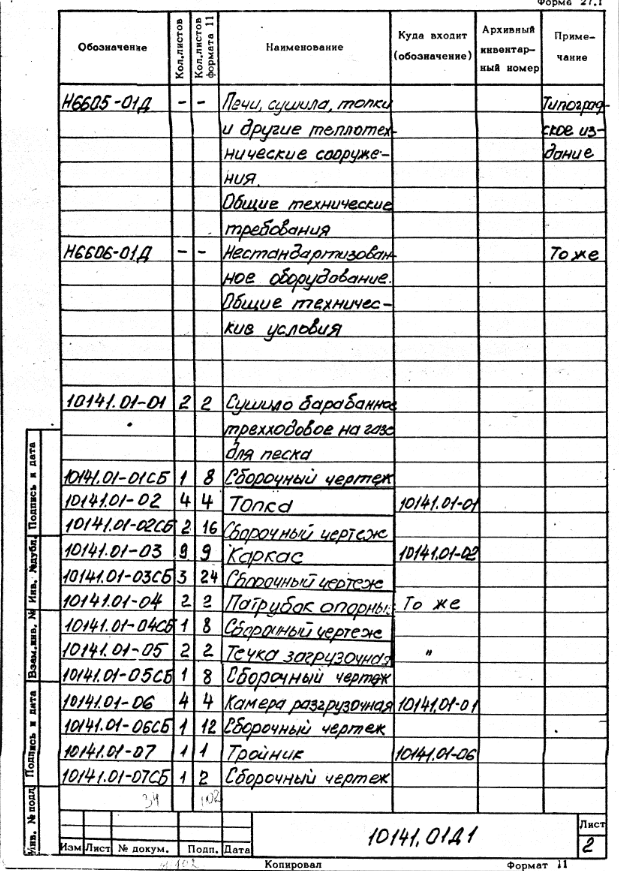 Форма 27.1
Обозначение Кол.листов Кол.листов формата 11 Наименование Куда входит (обозначение) Архивный инвентарный номер Примечание
Н6605-01Д - - Печи, сушила, топки Типограф-
и другие теплотех- ское из-
нические сооруже- дание
ния.
Общие технические
требования
Н6606-01Д - - Нестандартизован- То же
ное оборудование.
Общие техничес-
кив условия
10141.01-01 2 2 Сушило барабанное
трехходовое на газе
для песка
10141.01-01СБ 1 8 Сборочный чертеж
10141.01-02 4 4 Топка 10141.01-01
10141.01-02СБ 2 16 Сборочный чертеж
10141.01-03 9 9 Каркас 10141.01-02
10141.01-03СБ 3 24 Сборочный чертеж
10141.01-04 2 2 Патрубок опорный То же
10141.01-04СБ 1 8 Сборочный чертеж
10141.01-05 2 2 Течка загрузочная "
10141.01-05СБ 1 8 Сборочный чертеж
10141.01-06 4 4 Камера разгрузочная 10141.01-01
10141.01-06СБ 1 12 Сборочный чертеж
10141.01-07 1 1 Тройник 10141.01-06
10141.01-07СБ 1 2 Сборочный чертеж
34 102
Инв. № подл. Подпись и дата Взам.инв. № Инв. №дубл. Подпись и дата
10141.01Д1
Лист
2
Изм Лист № докум. Подп. Дата
Копировал Формат 11